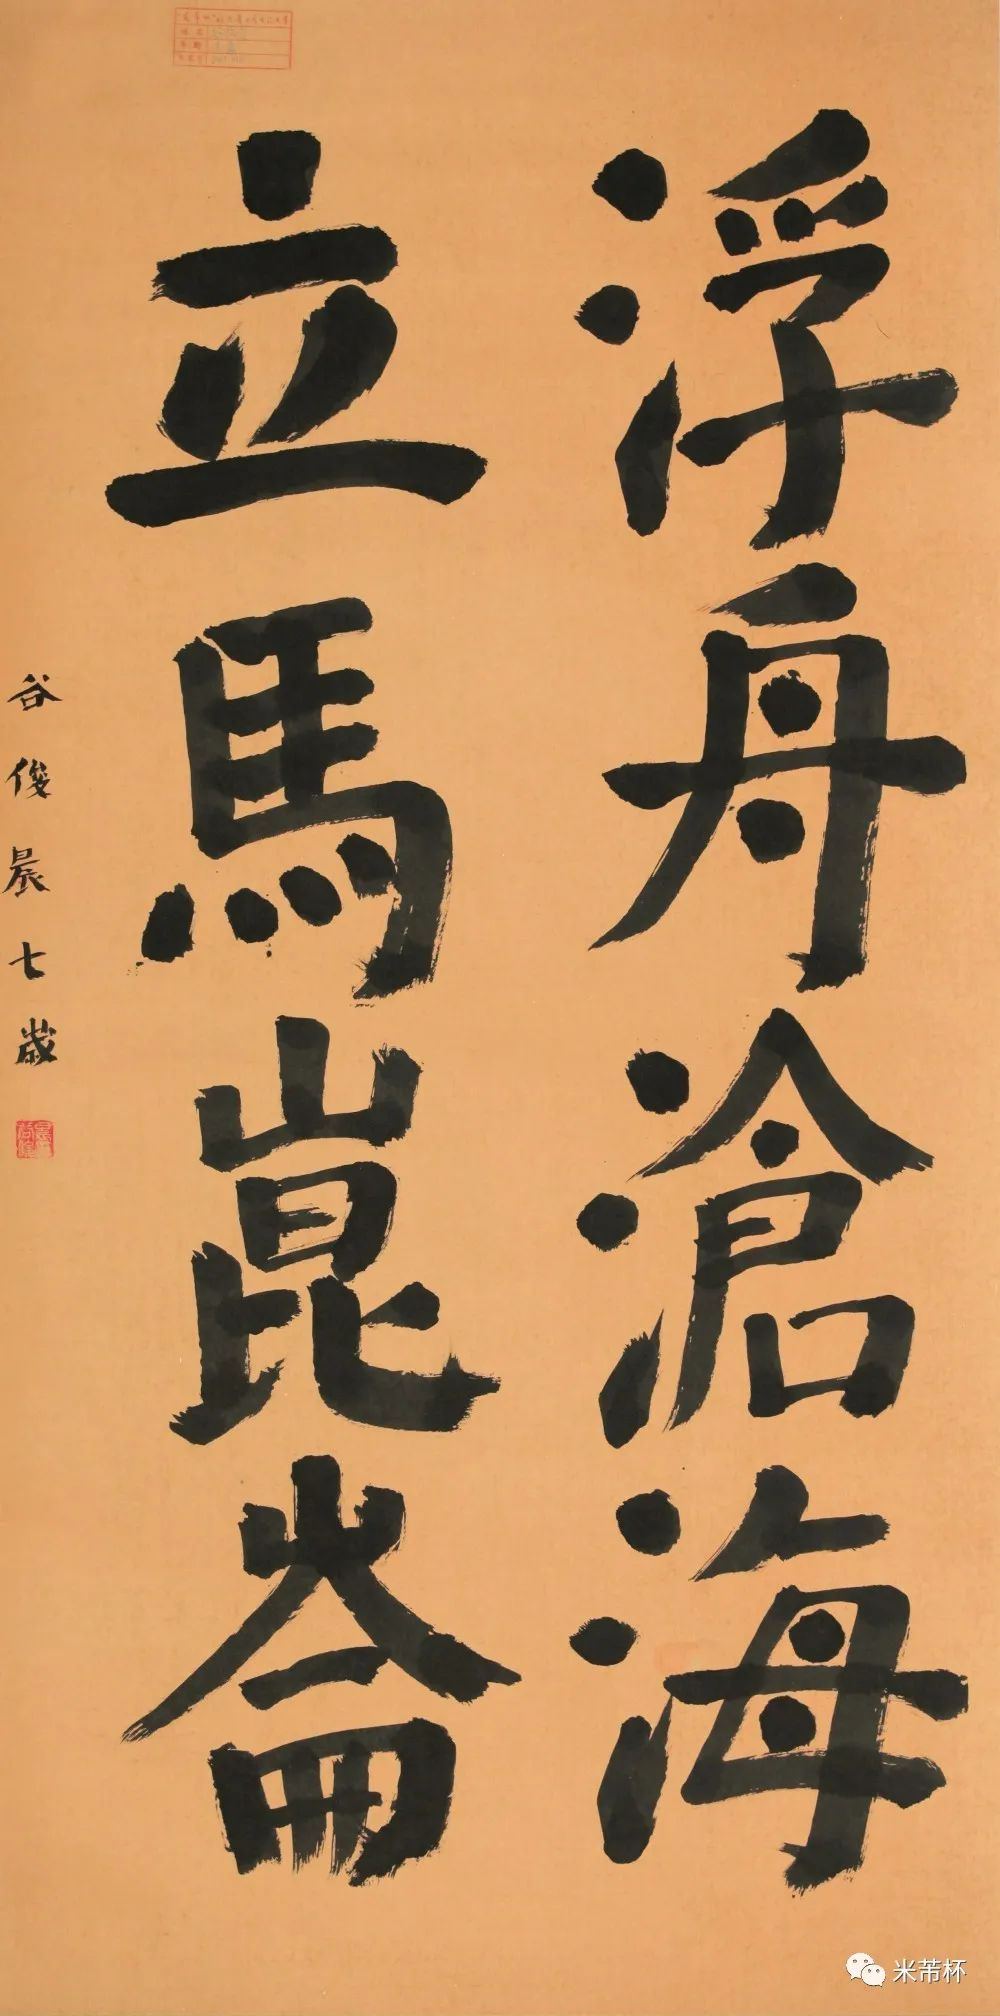 浮舟滄海
立馬崑崙
谷俊晨七歲
米芾杯